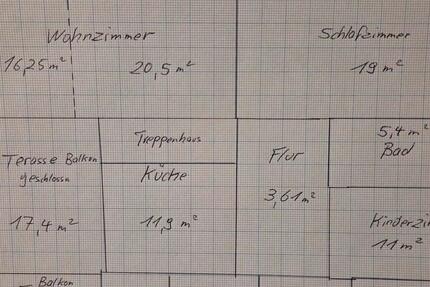 Wohnzimmer
16,25 m²
20,5 m²
Schlafzimmer
19 m²
Treppenhaus
Terasse Balkon
geschlossen
17,4 m²
Küche
11,9 m²
Flur
3,61 m²
5,4 m²
Bad
Kinderzi
11 m²
Balkon